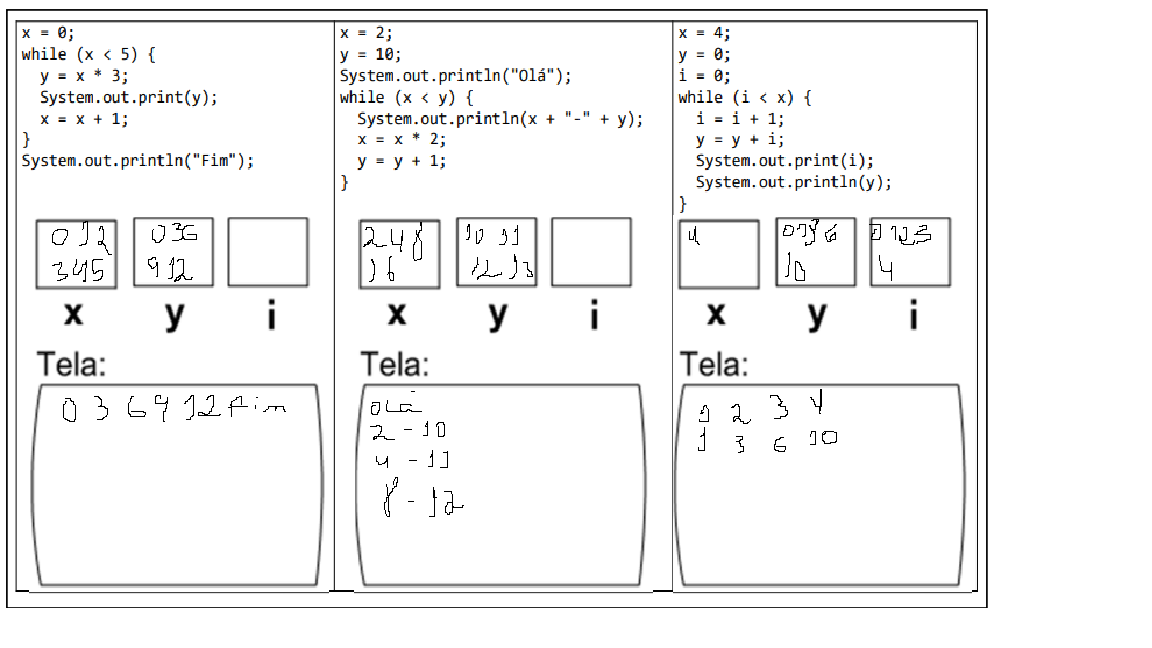 x = 0;
while (x < 5) {
y = x * 3;
System.out.print(y);
x = x + 1;
}
System.out.println("Fim");
0 1 2
3 4 5
0 3 6
9 12
x y i
Tela:
0 3 6 9 12 Fim
x = 2;
y = 10;
System.out.println("Olá");
while (x < y) {
System.out.println(x + "-" + y);
x = x * 2;
y = y + 1;
}
2 4 8
16
10 11
12 13
x y i
Tela:
OLÁ
2 - 10
4 - 11
8 - 12
x = 4;
y = 0;
i = 0;
while (i < x) {
i = i + 1;
y = y + i;
System.out.print(i);
System.out.println(y);
}
4
0 1 3 6
10
0 1 2 3
4
x y i
Tela:
1 2 3 4
1 3 6 10